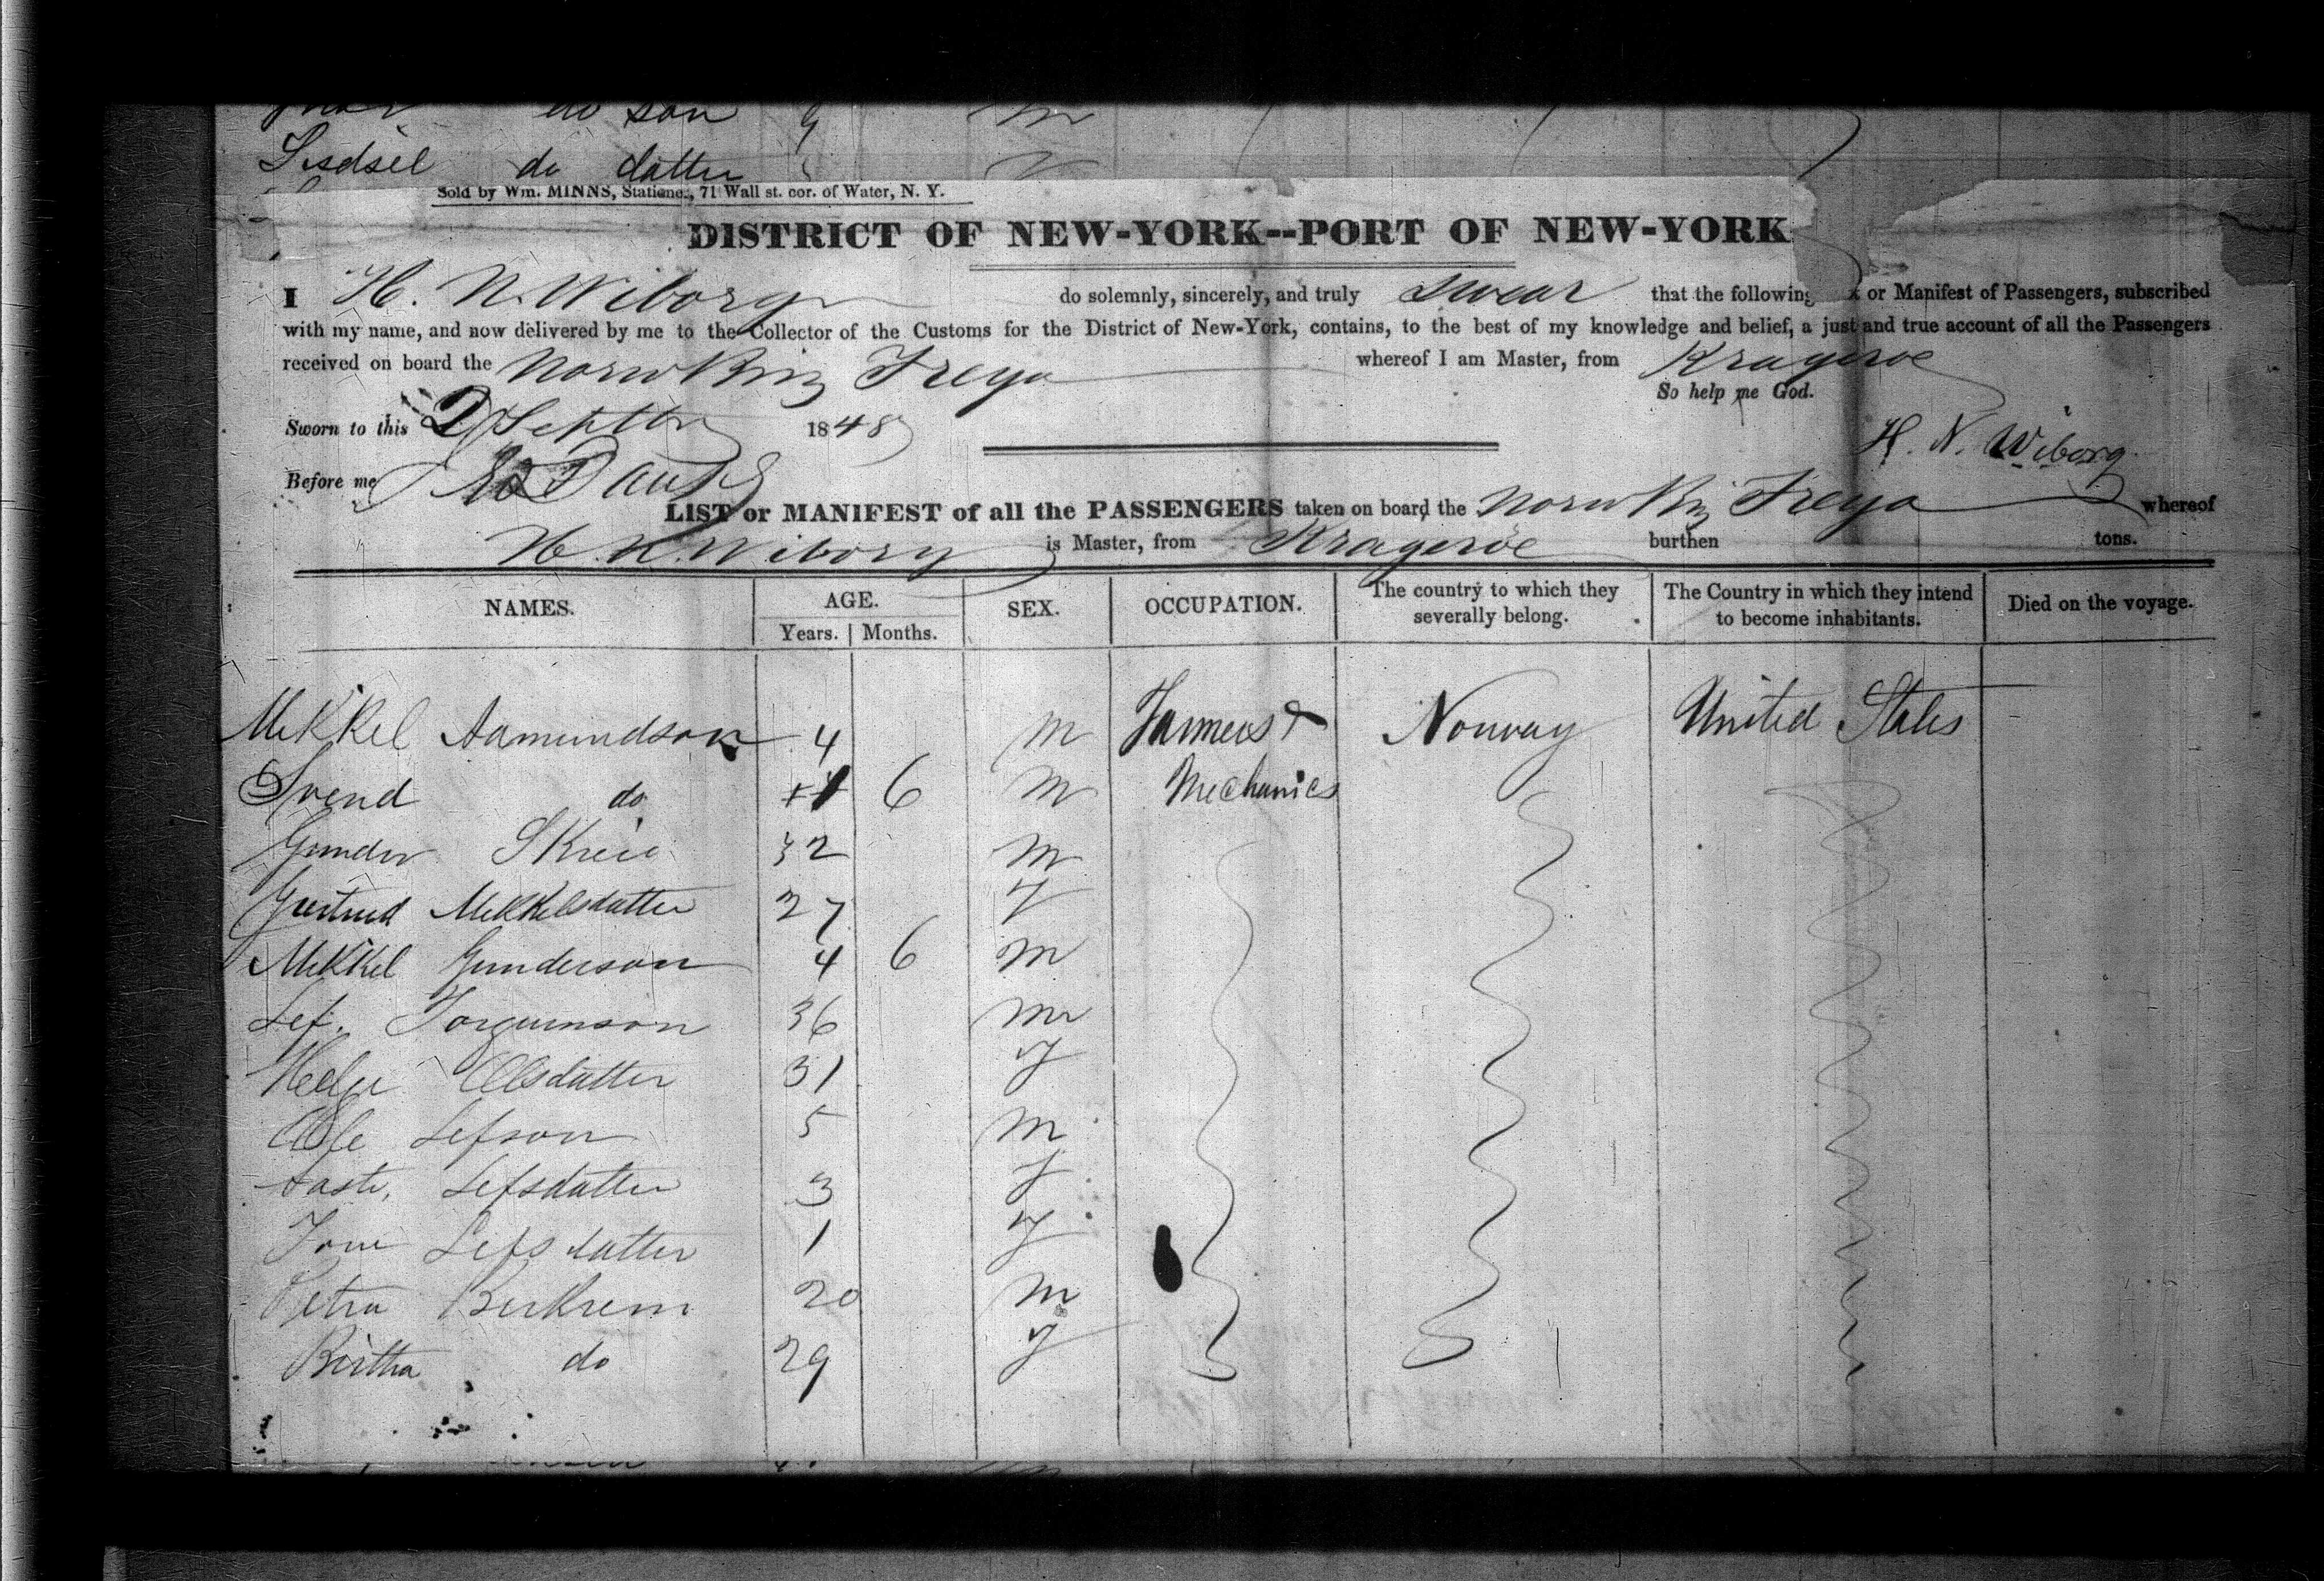 do son 9 m
Sisdsel do datter
Sold by Wm. MINNS, Stationer, 71 Wall st. cor. of Water, N. Y.
DISTRICT OF NEW-YORK--PORT OF NEW-YORK
I H. N. Wiborg do solemnly, sincerely, and truly swear that the following or Manifest of Passengers, subscribed
with my name, and now delivered by me to the Collector of the Customs for the District of New-York, contains, to the best of my knowledge and belief, a just and true account of all the Passengers
received on board the Norw Brig Freya whereof I am Master, from Krageroe
So help me God.
Sworn to this 2 Septbr 1848
H. N. Wiborg
Before me
LIST or MANIFEST of all the PASSENGERS taken on board the Norw Brig Freya whereof
H. N. Wiborg is Master, from Krageroe burthen tons.
NAMES. AGE. SEX. OCCUPATION. The country to which they severally belong. The Country in which they intend to become inhabitants. Died on the voyage.
Years. Months.
Mekkel Aamundson 4 m Farmers & Norway United States
Svend do 1 6 m Mechanics
Gunder Skrei 32 m
Gertrud Mekkelsdatter 27 f
Mekkel Gunderson 4 6 m
Lef. Torgumson 36 m
Helge Olsdatter 31 f
Ole Lefson 5 m
Aaste. Lefsdatter 3 f
Tone Lefsdatter 1 f
Petra Berkrem 20 m
Bertha do 29 f